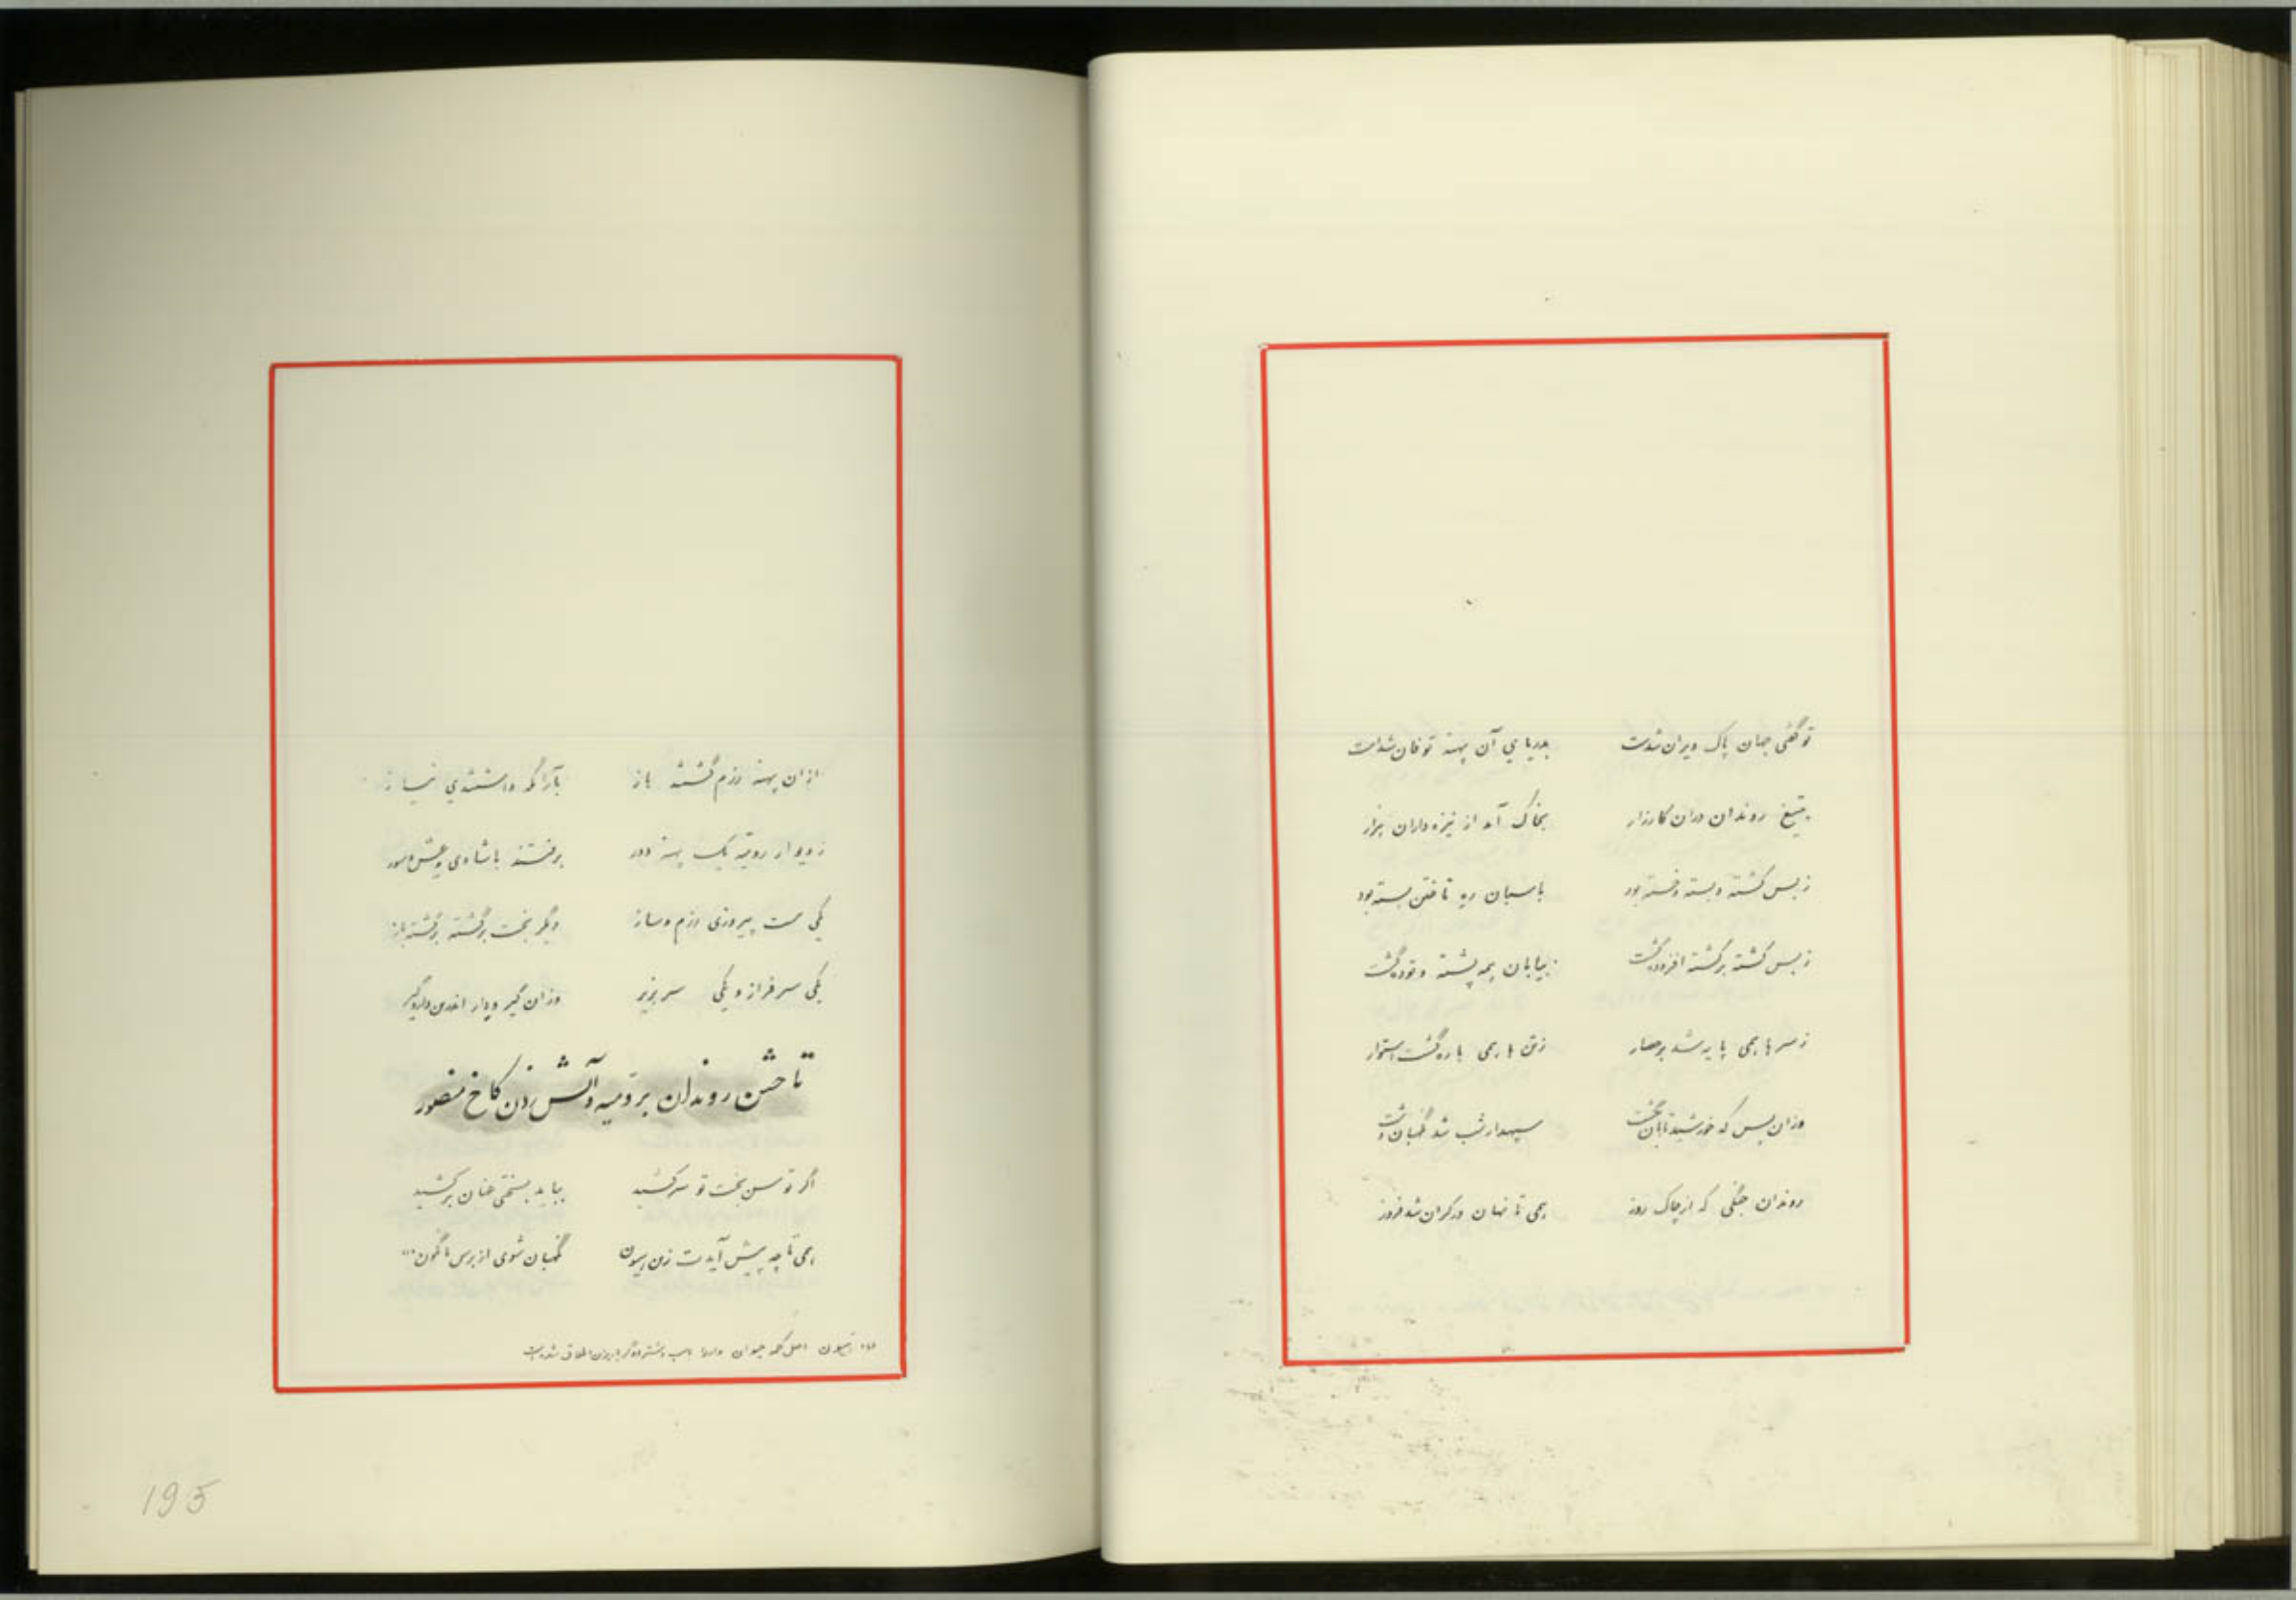 تو گفتی جهان پاک ویران شدست بدریای آن پهنه توفان شدست
بتیغ روندان دران کارزار بخاک آمد از نیزه داران هزار
زبس کشته و بسته و خسته بود باسبان ره تاختن بسته بود
زبس کشته برکشته افزوده گشت بیابان همه پشته و توده گشت
زسرها همی پایه شد برحصار زتن ها همی باره گشت استوار
وزان پس که خورشید تابان بخفت سپهدار شب شد نگهبان
روندان جنگی که از چاک روز همی تا نهان در کران شد فروز
ازان پهنه رزم گشتند باز بآرامگه داشتندی نیاز
زدیوار رومیه یک پهنه دور برفتند باشادی و عیش و سور
یکی مست پیروزی رزم وساز دگر بخت برگشته برگشته باز
یکی سرفراز و یکی سر بزیر وزان گیر و دار اندرین داروگیر
تاختن روندان برومیه و آتش زدن کاخ منصور
اگر توسن بخت تو سرکشید بباید بسختی عنان برکشید
همی تا چه پیش آیدت زین هیون نگهبان شوی از برس ناگون
هیون اصل کلمه حیوان و اسب و شتر و دیگر بارین اطلاق شده است
195